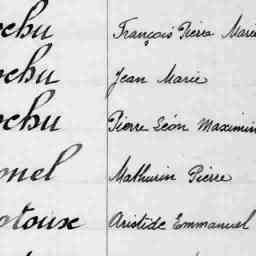 ochu François Pierre Marie
ochu Jean Marie
ochu Pierre Léon Maximin
onel Mathurin Pierre
otoux Aristide Emmanuel